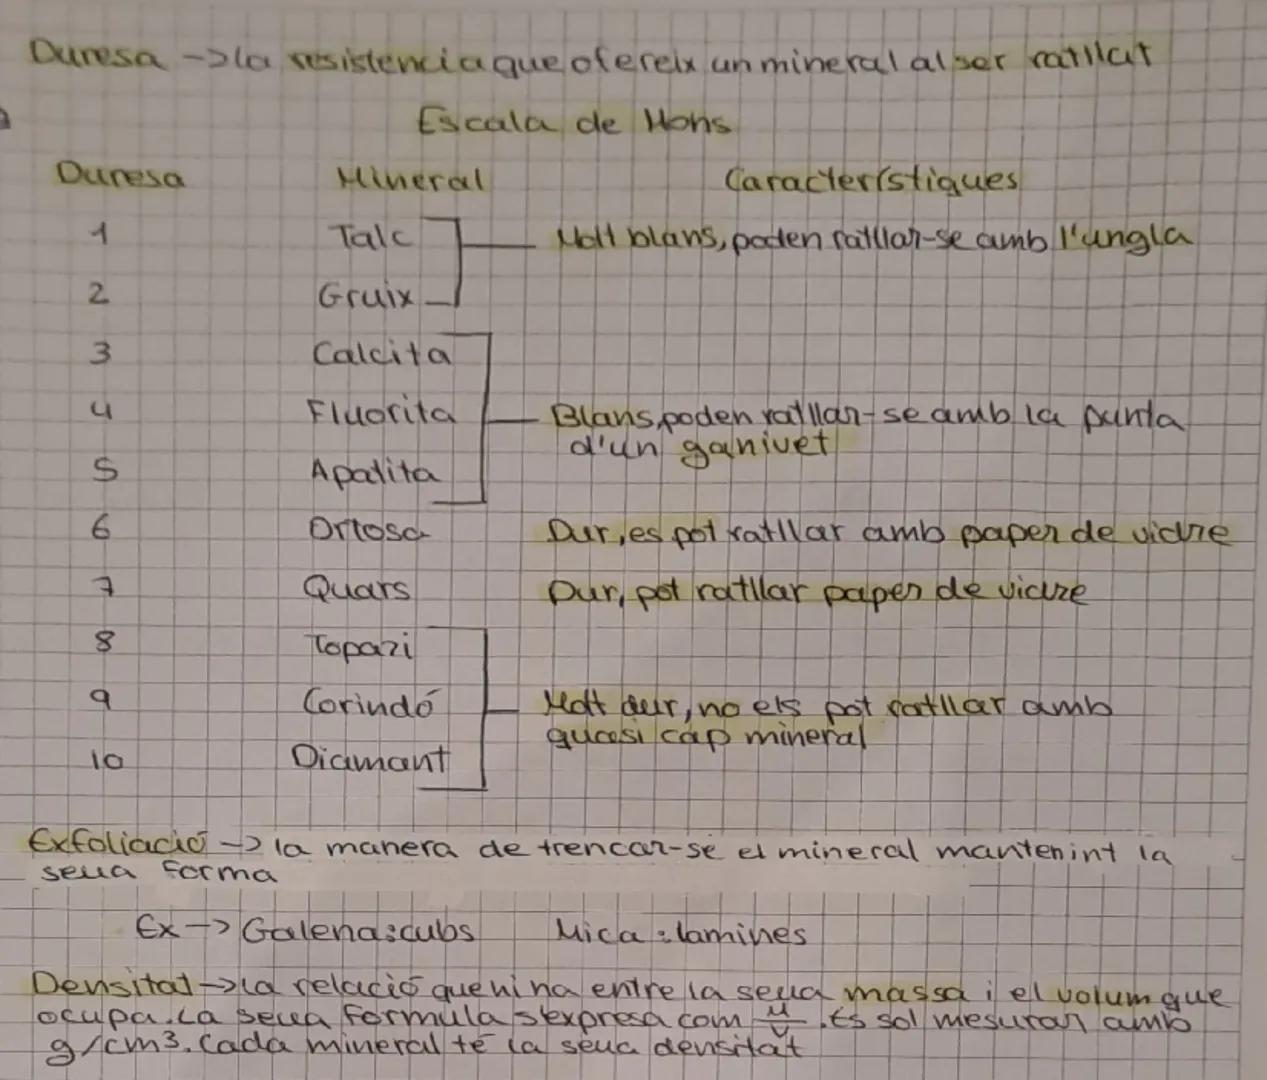 Duresa -> la resistencia que ofereix un mineral al ser ratllat
Escala de Mohs
Duresa Mineral Característiques
1 Talc Molt blans, poden ratllar-se amb l'ungla
2 Gruix
3 Calcita
4 Fluorita Blans, poden ratllar-se amb la punta
d'un ganivet
5 Apatita
6 Ortosa Dur, es pot ratllar amb paper de vidre
7 Quars Dur, pot ratllar paper de vidre
8 Topazi
9 Corindó Molt dur, no els pot ratllar amb
quasi cap mineral
10 Diamant
Exfoliació -> la manera de trencar-se el mineral mantenint la
seua forma
Ex -> Galena: cubs Mica: lamines
Densitat -> la relació que hi ha entre la seua massa i el volum que
ocupa. La seua formula s'expresa com M/V. Es sol mesurar amb
g/cm3. Cada mineral té la seua densitat